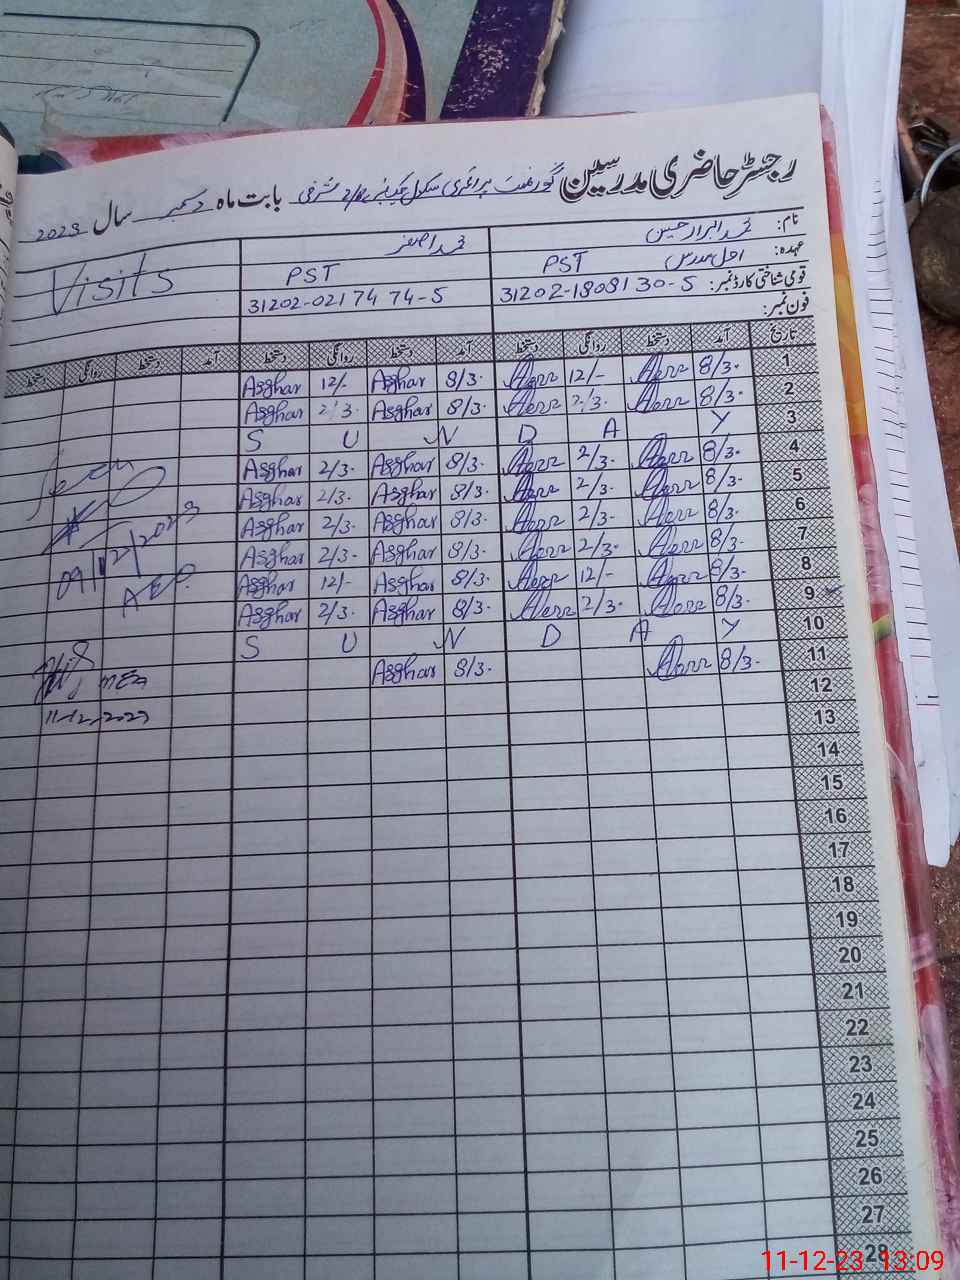 رجسٹر حاضری مدرسین گورنمنٹ پرائمری سکول شرقی بابت ماہ دسمبر سال 2023
نام: محمد ابرار حسین محمد اصغر Visits
عہدہ: PST PST
قومی شناختی کارڈ نمبر: 31202-1808130-5 31202-0217474-5
فون نمبر:
تاریخ آمد دستخط روانگی دستخط آمد دستخط روانگی دستخط آمد دستخط روانگی دستخط
1 8/3. 12/- 8/3. Asghar 12/- Asghar
2 8/3. 2/3. 8/3. Asghar 2/3. Asghar
3 S U N D A Y
4 8/3. 2/3. 8/3. Asghar 2/3. Asghar
5 8/3. 2/3. 8/3. Asghar 2/3. Asghar
6 8/3. 2/3. 8/3. Asghar 2/3. Asghar
7 8/3. 2/3. 8/3. Asghar 2/3. Asghar
8 8/3. 12/- 8/3. Asghar 12/- Asghar
9 8/3. 2/3. 8/3. Asghar 2/3. Asghar 09/12/2023
10 S U N D A Y
11 8/3. 8/3. Asghar MEA
12 11-12-2023
13
14
15
16
17
18
19
20
21
22
23
24
25
26
27
28
11-12-23 13:09